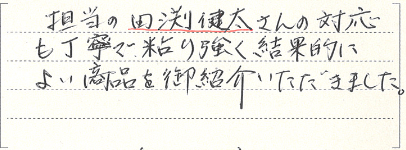 担当の田渕健太さんの対応
も丁寧で粘り強く結果的に
よい商品を御紹介いただきました。